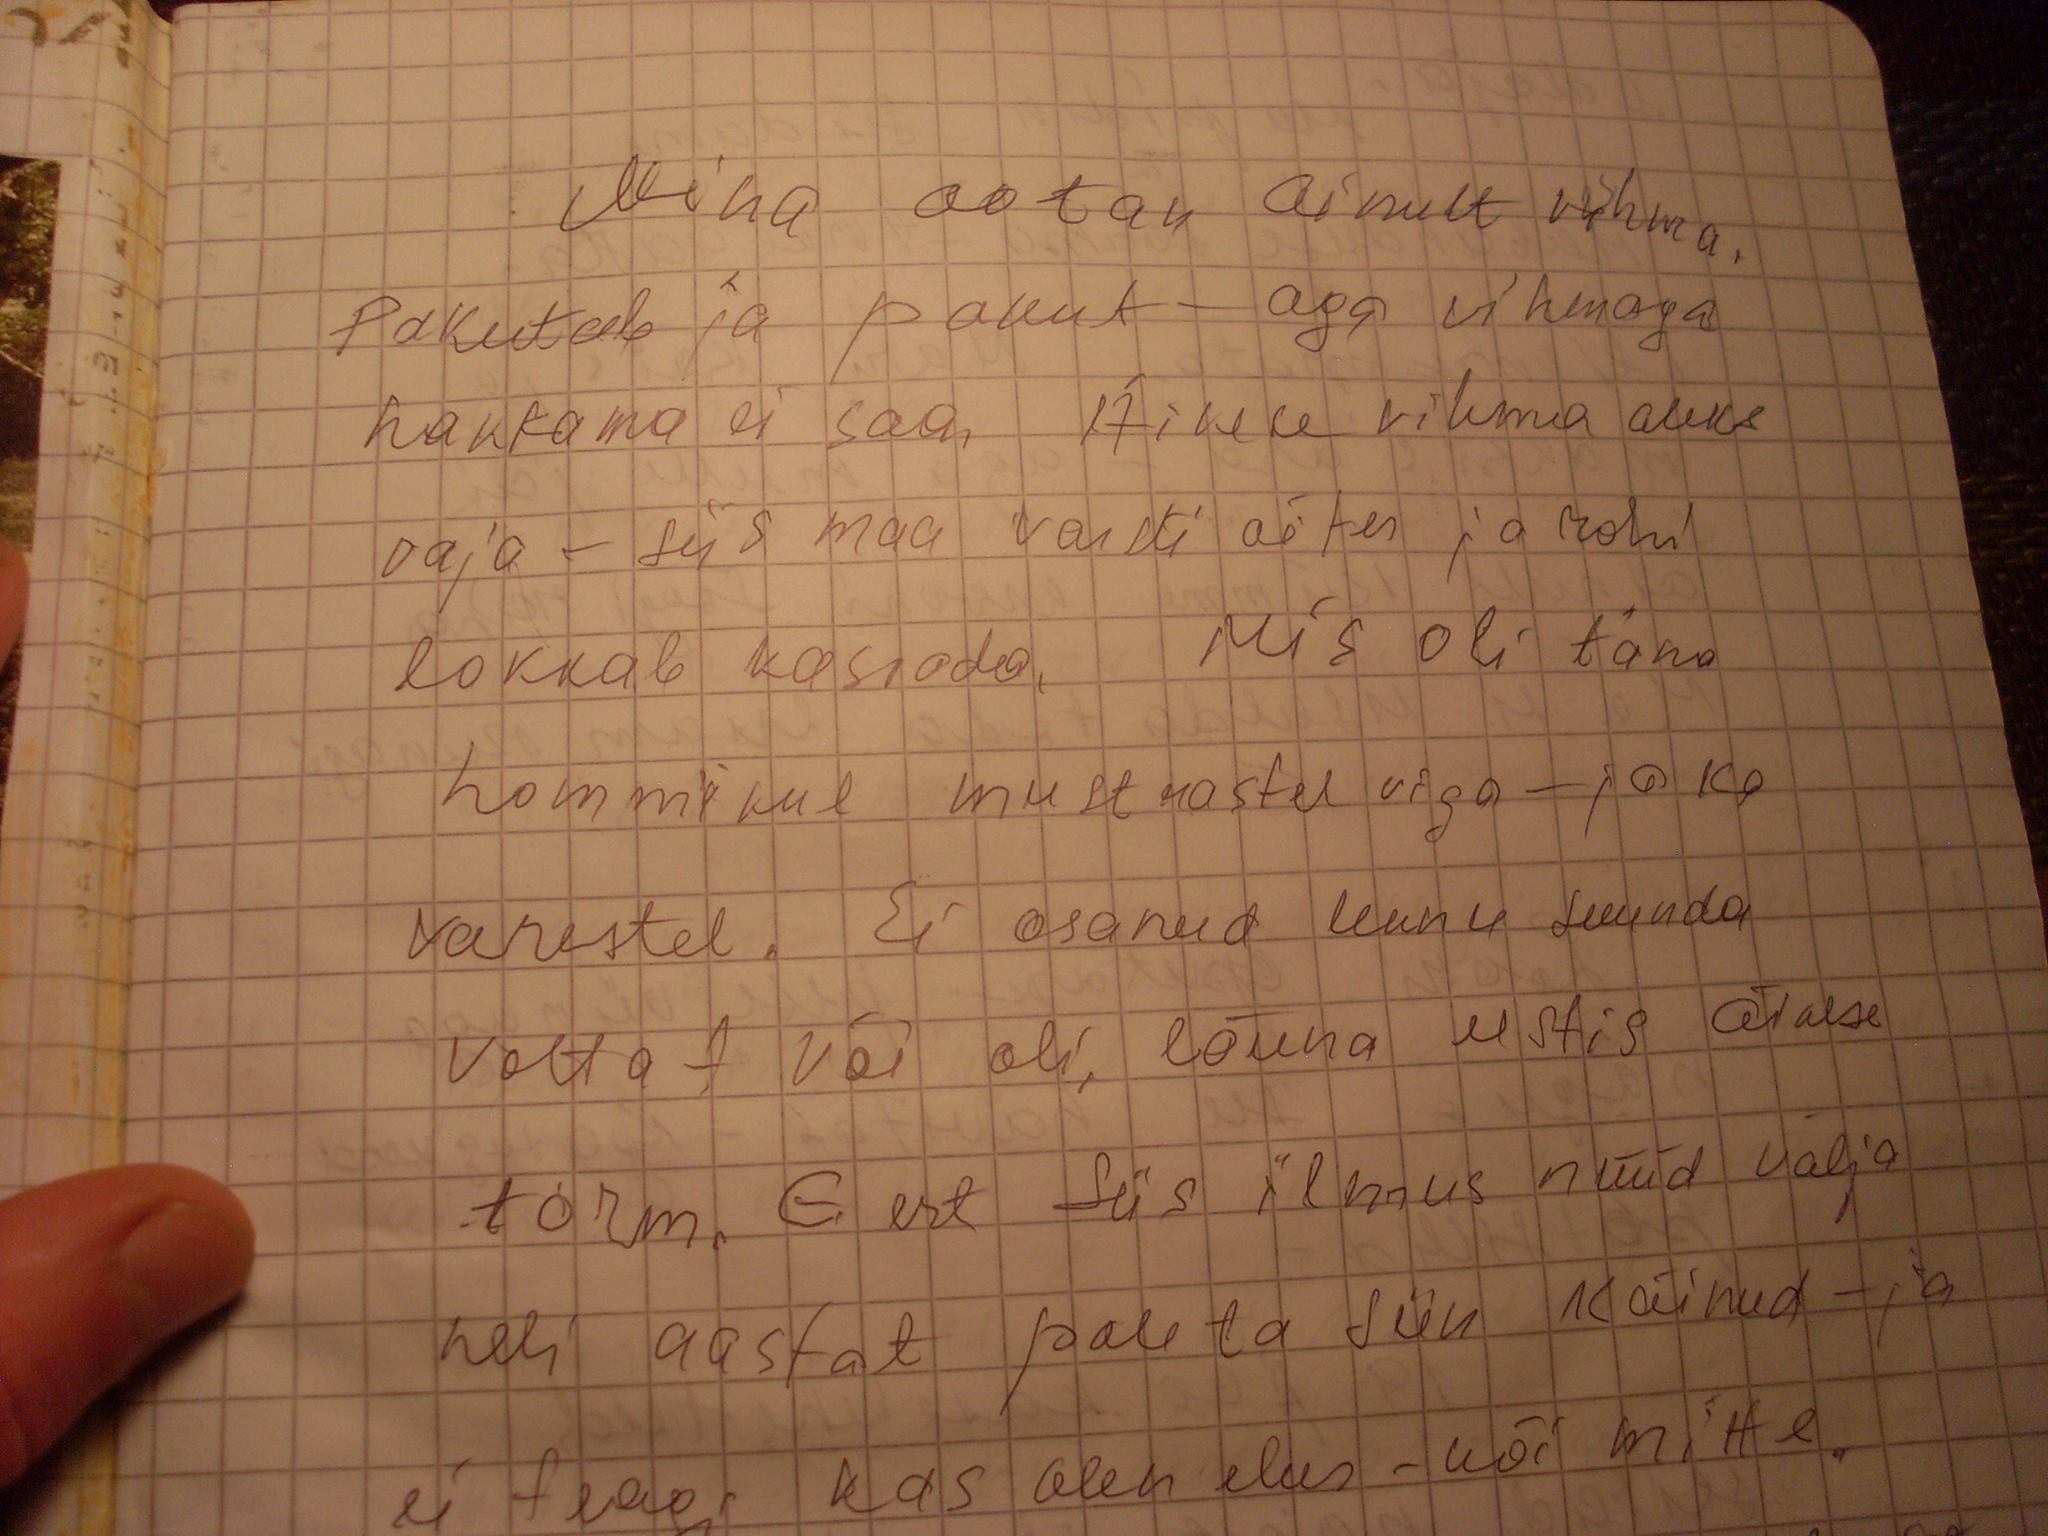 Mina ootan ainult vihma.
Pakutab ja pakut – aga vihmaga
hakkama ei saa. Äikese vihma oleks
vaja – siis maa varsti aites ja rohi
lokkab kasvada. Mis oli täna
hommikul mustrastel viga – ja ka
varestel. Ei osanud lennu suunda
võtta – või oli, lõuna ustis äikese
torm. Eert siis ilmus nüüd välja
neli aastat pole ta siin käinud – ja
ei teagi kas olen elus – või mitte.